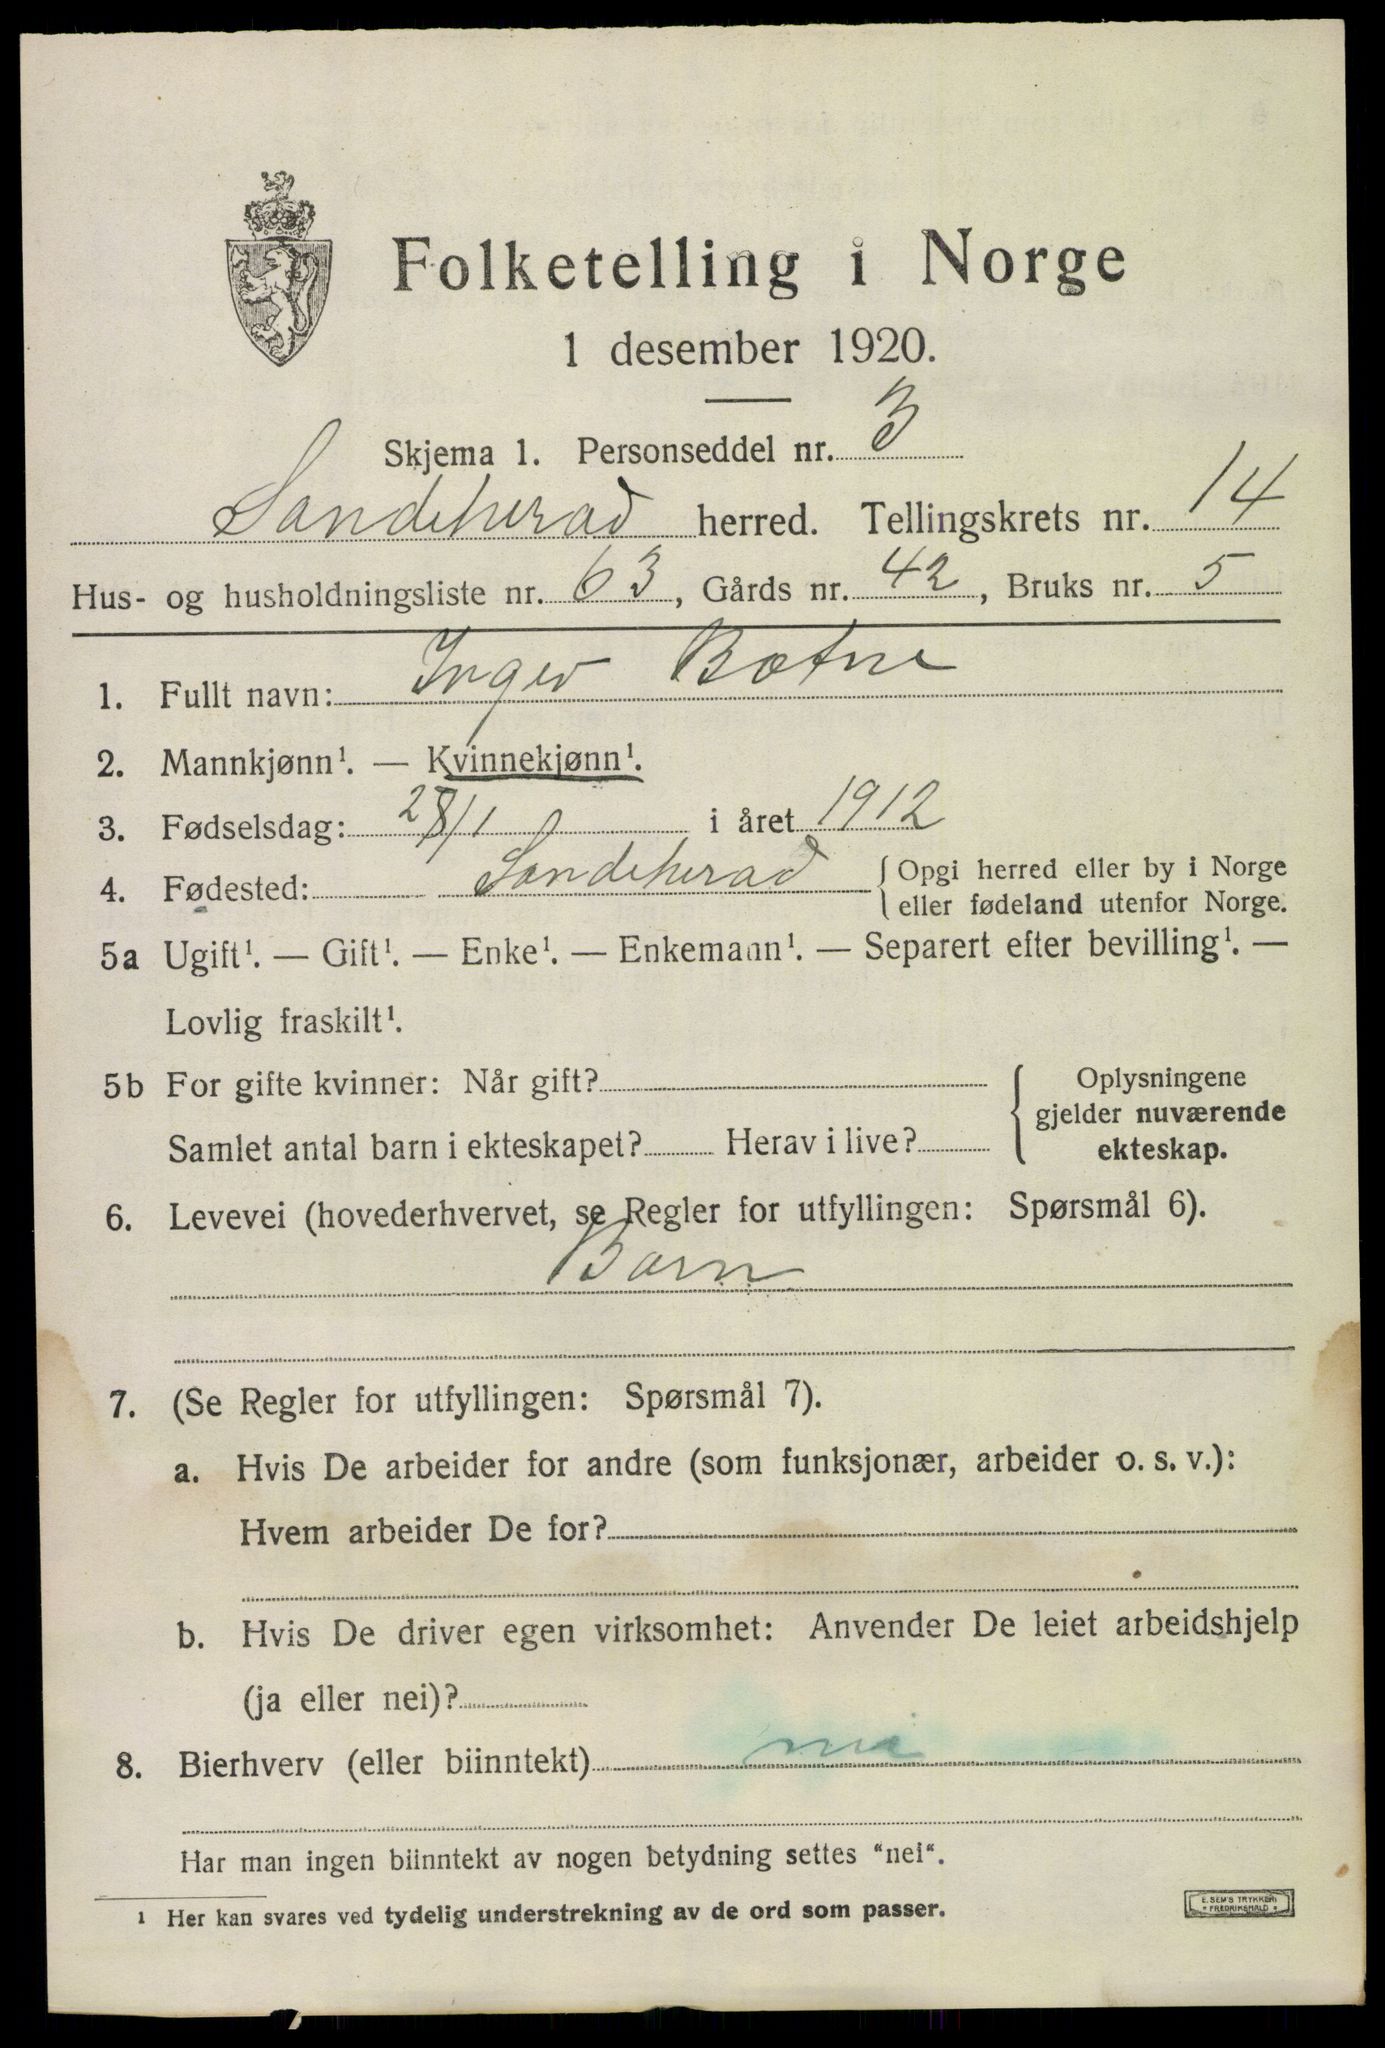 Folketelling i Norge
1 desember 1920.
Skjema 1. Personseddel nr. 3
Sandeherad herred. Tellingskrets nr. 14
Hus- og husholdningsliste nr. 63, Gårds nr. 42, Bruks nr. 5
1. Fullt navn: Inger Bøtne
2. Mannkjønn¹. — Kvinnekjønn¹.
3. Fødselsdag: 28/1 i året 1912
4. Fødested: Sandeherad { Opgi herred eller by i Norge
eller fødeland utenfor Norge.
5a Ugift¹. — Gift¹. — Enke¹. — Enkemann¹. — Separert efter bevilling¹. —
Lovlig fraskilt¹.
5b For gifte kvinner: Når gift?
Samlet antal barn i ekteskapet? Herav i live?
{ Oplysningene
gjelder nuværende
ekteskap.
6. Levevei (hovederhvervet, se Regler for utfyllingen: Spørsmål 6).
Barn
7. (Se Regler for utfyllingen: Spørsmål 7).
a. Hvis De arbeider for andre (som funksjonær, arbeider o. s. v.):
Hvem arbeider De for?
b. Hvis De driver egen virksomhet: Anvender De leiet arbeidshjelp
(ja eller nei)?
8. Bierhverv (eller biinntekt) nei
Har man ingen biinntekt av nogen betydning settes "nei".
¹ Her kan svares ved tydelig understrekning av de ord som passer.
E. SEM'S TRYKKERI
* FREDRIKSHALD *